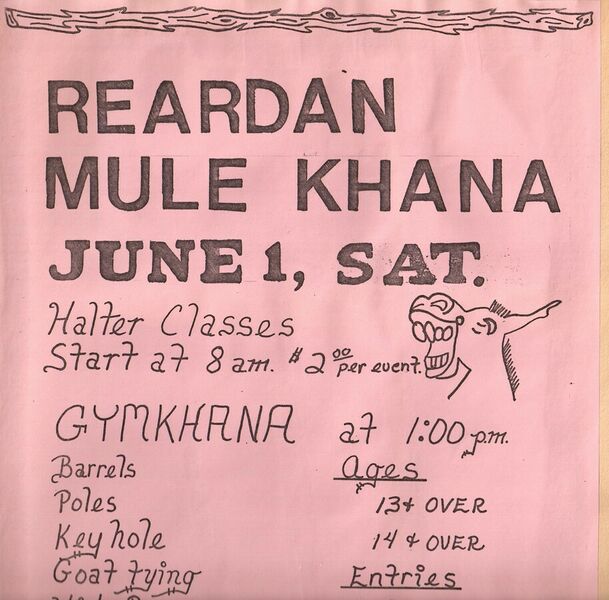 REARDAN
MULE KHANA
JUNE 1, SAT.
Halter Classes
Start at 8 am. $2 00 per event.
GYMKHANA at 1:00 p.m.
Barrels Ages
Poles 13 & OVER
Key hole 14 & OVER
Goat tying Entries